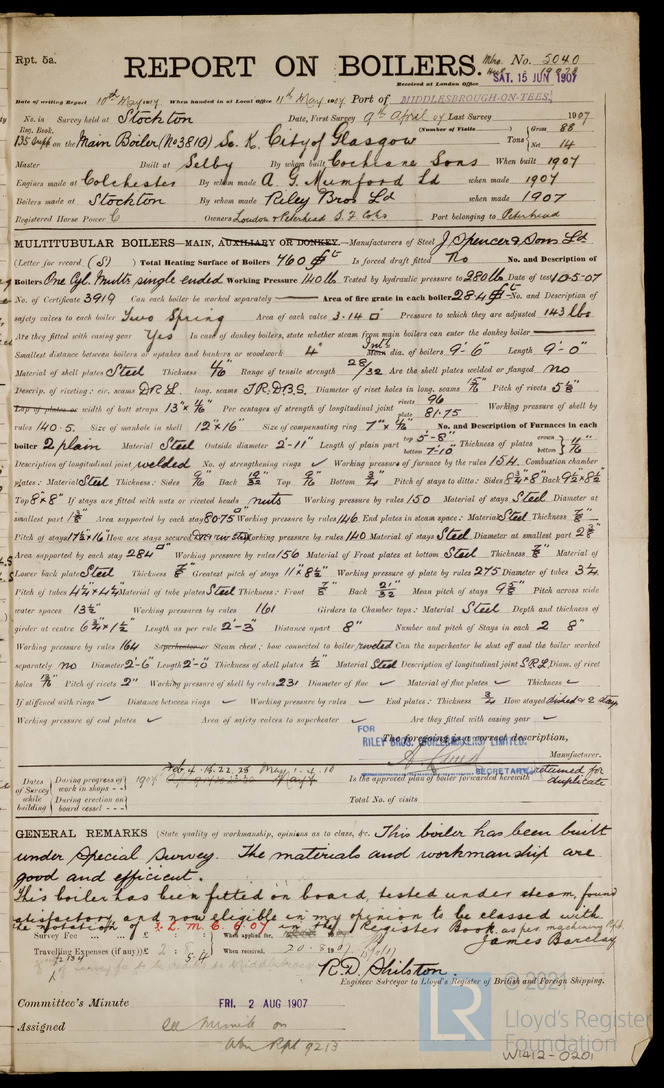 Rpt. 5a.
REPORT ON BOILERS.
Mbro. No. 5040
Received at London Office SAT. 15 JUN 1907
Date of writing Report 10th May 1907 When handed in at Local Office 11th May 1907 Port of MIDDLESBROUGH-ON-TEES.
No. in Survey held at Stockton Date, First Survey 9th April 07 Last Survey 1907
Reg. Book. (Number of Visits ) Gross 88
135 Supp on the Main Boiler (No 3810) Sc. K. City of Glasgow Tons Net 14
Master Built at Selby By whom built Cochrane Sons When built 1907
Engines made at Colchester By whom made A. G. Mumford Ld when made 1907
Boilers made at Stockton By whom made Riley Bros Ld when made 1907
Registered Horse Power Owners London & Peterhead S. F. Coks Port belonging to Peterhead
MULTITUBULAR BOILERS—MAIN, AUXILIARY OR DONKEY.—Manufacturers of Steel J. Spencer & Sons Ld
(Letter for record (S) ) Total Heating Surface of Boilers 760 Is forced draft fitted No No. and Description of
Boilers One Cyl. Multr single ended Working Pressure 140 lb. Tested by hydraulic pressure to 280 lb Date of test 10-5-07
No. of Certificate 3919 Can each boiler be worked separately Area of fire grate in each boiler 28.4 No. and Description of
safety valves to each boiler Two Spring Area of each valve 3.14 □ Pressure to which they are adjusted 143 lbs
Are they fitted with easing gear Yes In case of donkey boilers, state whether steam from main boilers can enter the donkey boiler
Smallest distance between boilers or uptakes and bunkers or woodwork 4" Intl Mean dia. of boilers 9'-6" Length 9'-0"
Material of shell plates Steel Thickness Range of tensile strength 28/32 Are the shell plates welded or flanged no
Descrip. of riveting: cir. seams D.R.L. long. seams T.R.D.B.S. Diameter of rivet holes in long. seams Pitch of rivets
Lap of plates or width of butt straps Per centages of strength of longitudinal joint rivets 96 plate 81.75 Working pressure of shell by
rules 140.5. Size of manhole in shell 12" x 16" Size of compensating ring No. and Description of Furnaces in each
boiler 2 plain Material Steel Outside diameter 2'-11" Length of plain part top 5'-8" bottom 7'-10" Thickness of plates crown bottom
Description of longitudinal joint welded No. of strengthening rings ✓ Working pressure of furnace by the rules 154. Combustion chamber
plates: Material Steel Thickness: Sides Back Top Bottom 3/4" Pitch of stays to ditto: Sides Back
Top 8" x 8" If stays are fitted with nuts or riveted heads nuts Working pressure by rules 150 Material of stays Steel Diameter at
smallest part Area supported by each stay 80.75 □" Working pressure by rules 146 End plates in steam space: Material Steel Thickness 7/8"
Pitch of stays How are stays secured Working pressure by rules 140 Material of stays Steel Diameter at smallest part
Area supported by each stay 284 □" Working pressure by rules 156 Material of Front plates at bottom Steel Thickness 7/8" Material of
Lower back plate Steel Thickness 7/8" Greatest pitch of stays 11" x 8½" Working pressure of plate by rules 275 Diameter of tubes 3¼
Pitch of tubes Material of tube plates Steel Thickness: Front 7/8" Back 21/32" Mean pitch of stays Pitch across wide
water spaces 13½" Working pressures by rules 161 Girders to Chamber tops: Material Steel Depth and thickness of
girder at centre 6¾" x 1½" Length as per rule 2'-3" Distance apart 8" Number and pitch of Stays in each 2 8"
Working pressure by rules 164 Superheater or Steam chest; how connected to boiler riveted Can the superheater be shut off and the boiler worked
separately no Diameter 2'-6" Length 2'-0" Thickness of shell plates ½" Material Steel Description of longitudinal joint S.R.L. Diam. of rivet
holes Pitch of rivets 2" Working pressure of shell by rules 231 Diameter of flue ✓ Material of flue plates ✓ Thickness ✓
If stiffened with rings ✓ Distance between rings ✓ Working pressure by rules ✓ End plates: Thickness 3/4 How stayed dished & 2 stays
Working pressure of end plates ✓ Area of safety valves to superheater ✓ Are they fitted with easing gear ✓
The foregoing is a correct description,
FOR
RILEY BROS. (BOILERMAKERS) LIMITED.
SECRETARY.
Manufacturer.
Dates of Survey while building
During progress of work in shops - - 1907 Feb. 4. 15. 22. 28 May. 1. 4. 10
During erection on board vessel - - -
Is the approved plan of boiler forwarded herewith retained for duplicate
Total No. of visits
GENERAL REMARKS (State quality of workmanship, opinions as to class, &c. This boiler has been built
under special survey. The materials and workmanship are
good and efficient.
This boiler has been fitted on board, tested under steam, found
satisfactory and now eligible in my opinion to be classed with
the notation of L.M.C. 6.07 in the Register Book, as per machinery Rpt.
James Barclay
Survey Fee ... ... £ : : When applied for,
Travelling Expenses (if any) £ 2 : 8 When received, 20.8.1907
R.D. Shilston
Engineer Surveyor to Lloyd's Register of British and Foreign Shipping.
Committee's Minute FRI. 2 AUG 1907
Assigned See minute on
Abn Rpt 9213
© 2021
LR
Lloyd's Register
Foundation
W1412-0201